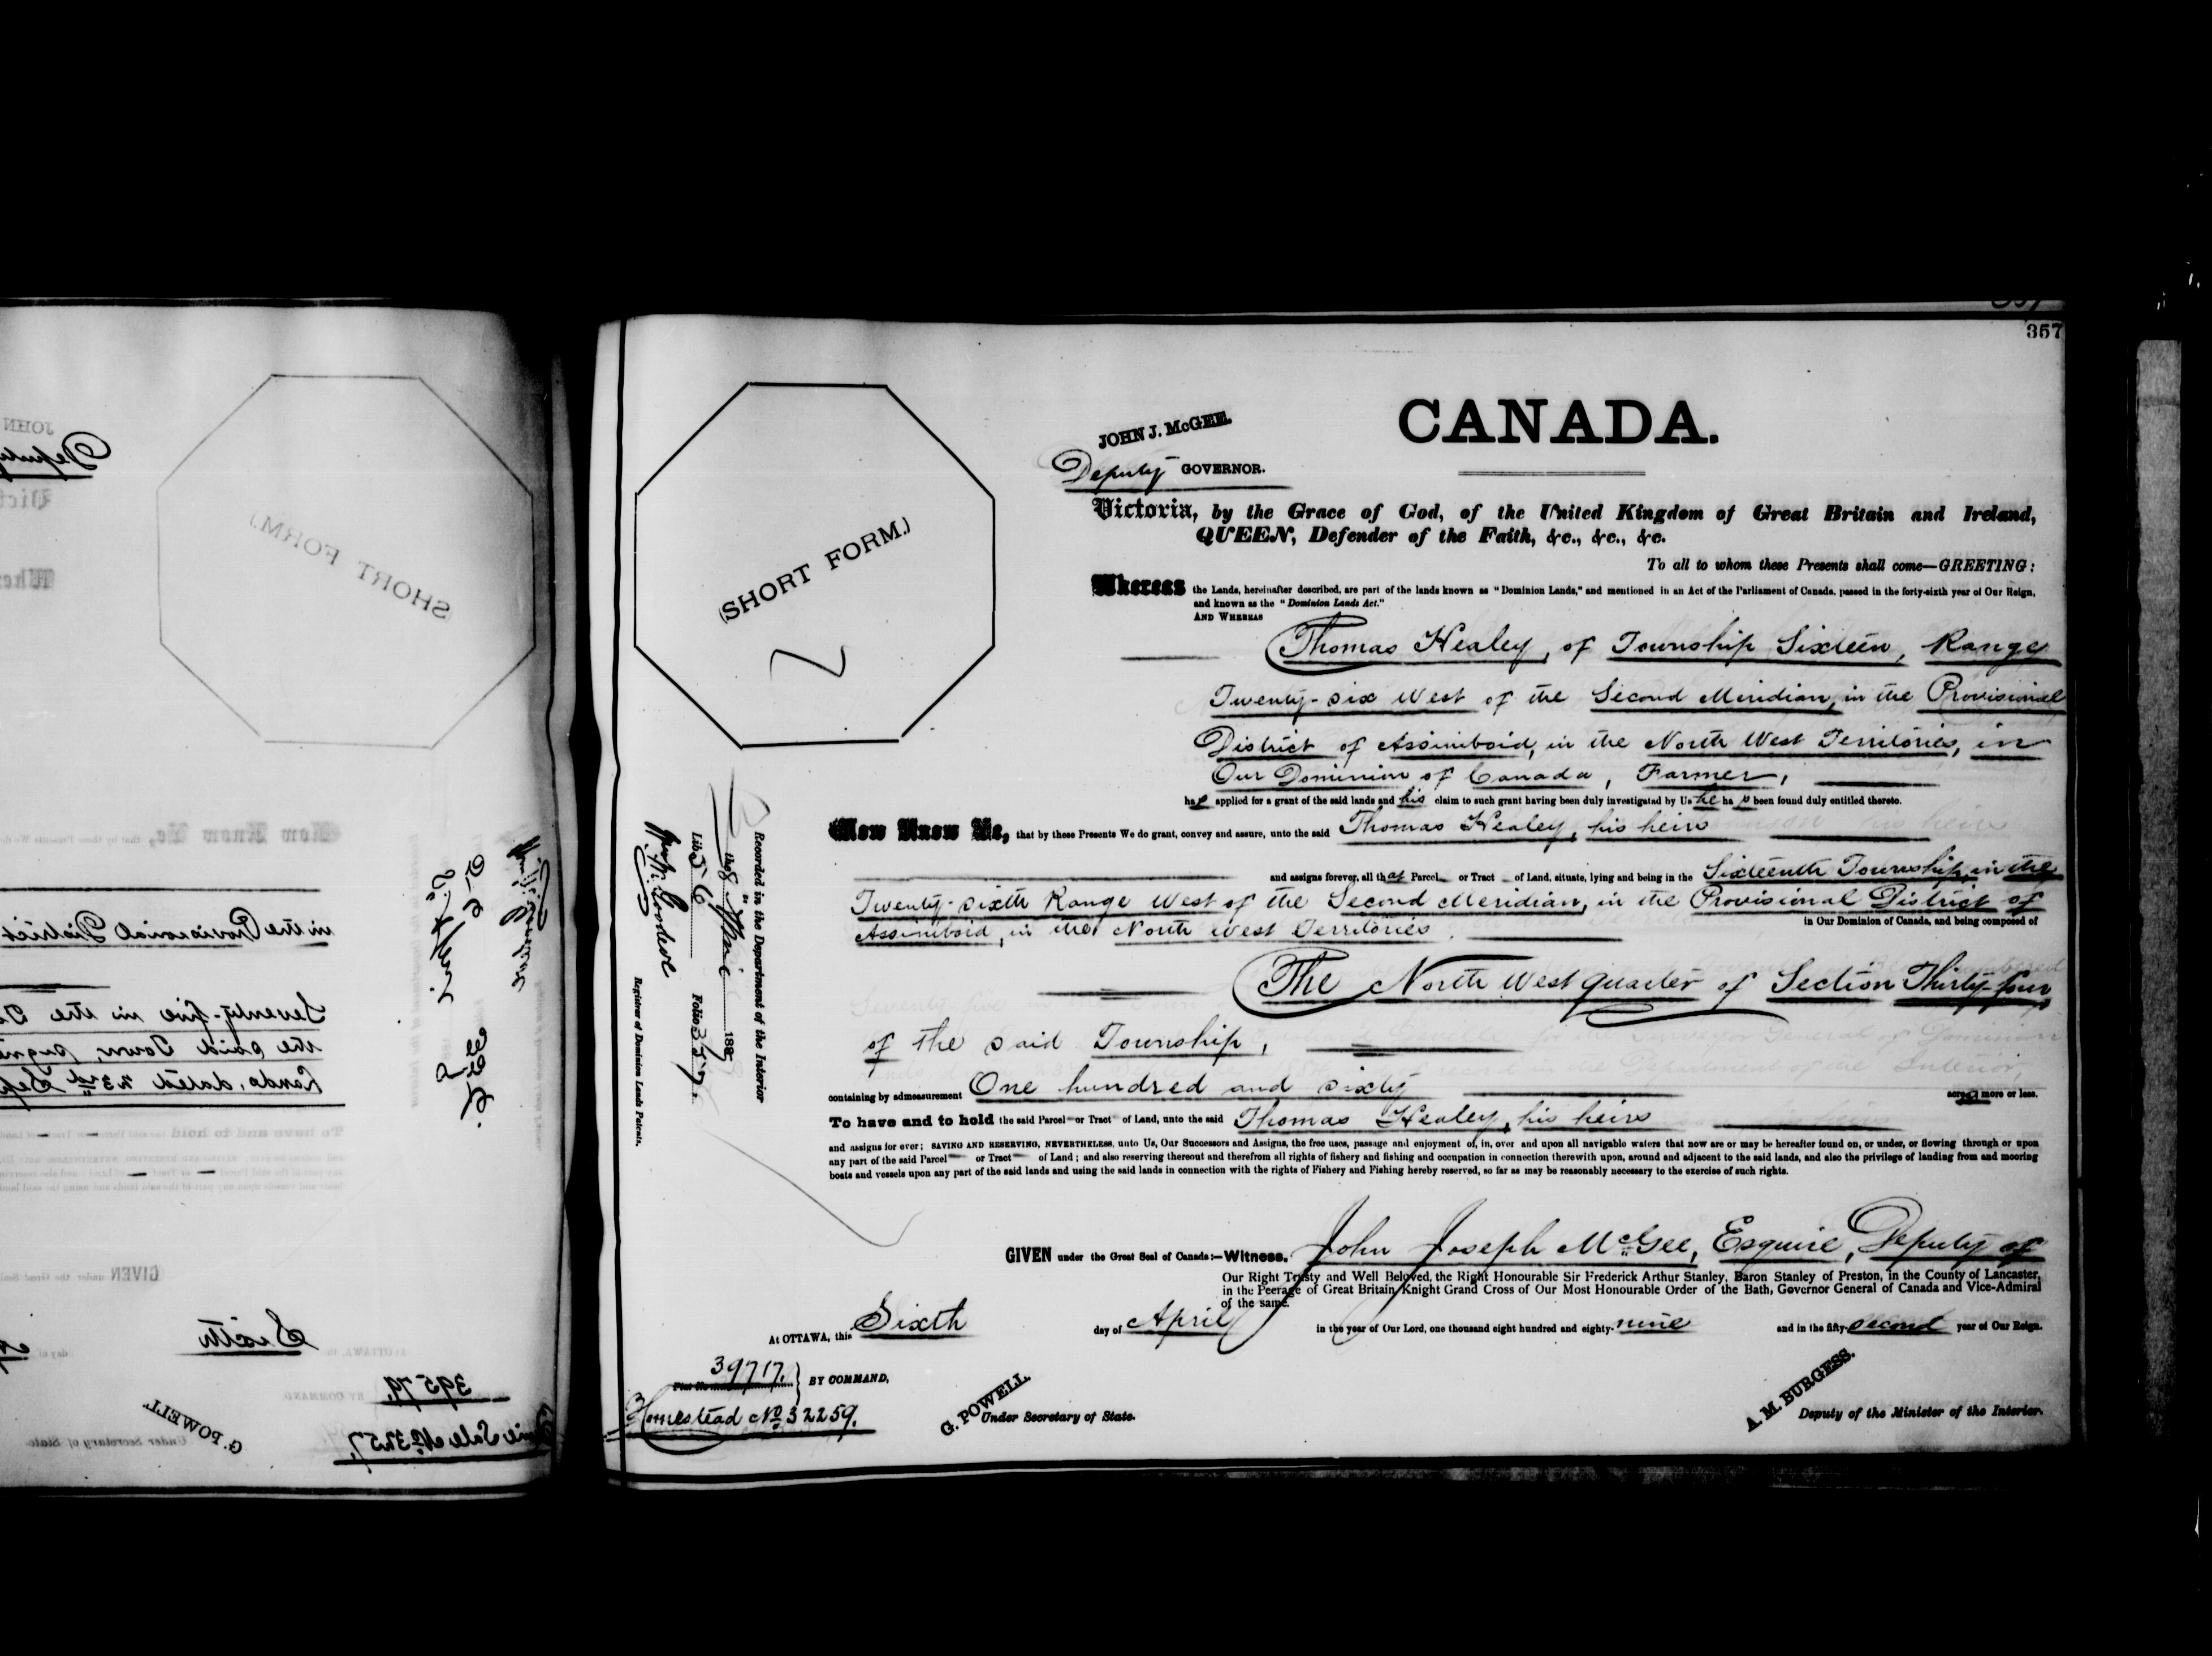 357
CANADA.
JOHN J. McGEE.
Deputy GOVERNOR.
(SHORT FORM.)
Victoria, by the Grace of God, of the United Kingdom of Great Britain and Ireland,
QUEEN, Defender of the Faith, &c., &c., &c.
To all to whom these Presents shall come—GREETING:
Whereas the Lands, hereinafter described, are part of the lands known as "Dominion Lands," and mentioned in an Act of the Parliament of Canada, passed in the forty-sixth year of Our Reign,
and known as the "Dominion Lands Act."
AND WHEREAS
Thomas Healey, of Township Sixteen, Range
Twenty-six West of the Second Meridian, in the Provisional
District of Assiniboia, in the North West Territories, in
Our Dominion of Canada, Farmer,
has applied for a grant of the said lands and his claim to such grant having been duly investigated by Us he has been found duly entitled thereto.
Now Know Ye, that by these Presents We do grant, convey and assure, unto the said Thomas Healey, his heirs
and assigns forever, all that Parcel or Tract of Land, situate, lying and being in the Sixteenth Township, in the
Twenty-sixth Range West of the Second Meridian, in the Provisional District of
Assiniboia, in the North West Territories. in Our Dominion of Canada, and being composed of
The North West quarter of Section Thirty-four
of the said Township,
containing by admeasurement One hundred and sixty acres more or less.
To have and to hold the said Parcel or Tract of Land, unto the said Thomas Healey, his heirs
and assigns for ever; SAVING AND RESERVING, NEVERTHELESS, unto Us, Our Successors and Assigns, the free uses, passage and enjoyment of, in, over and upon all navigable waters that now are or may be hereafter found on, or under, or flowing through or upon
any part of the said Parcel or Tract of Land; and also reserving thereout and therefrom all rights of fishery and fishing and occupation in connection therewith upon, around and adjacent to the said lands, and also the privilege of landing from and mooring
boats and vessels upon any part of the said lands and using the said lands in connection with the rights of Fishery and Fishing hereby reserved, so far as may be reasonably necessary to the exercise of such rights.
GIVEN under the Great Seal of Canada:—Witness, John Joseph McGee, Esquire, Deputy of
Our Right Trusty and Well Beloved, the Right Honourable Sir Frederick Arthur Stanley, Baron Stanley of Preston, in the County of Lancaster,
in the Peerage of Great Britain, Knight Grand Cross of Our Most Honourable Order of the Bath, Governor General of Canada and Vice-Admiral
of the same.
At OTTAWA, this Sixth day of April in the year of Our Lord, one thousand eight hundred and eighty-nine and in the fifty-second year of Our Reign.
39717.
BY COMMAND,
Homestead No 32259.
G. POWELL.
Under Secretary of State.
A. M. BURGESS.
Deputy of the Minister of the Interior.
Recorded in the Department of the Interior
the 8 April 1889
Lib. 56 Folio 357.
Registrar of Dominion Lands Patents.
(SHORT FORM.)
in the Provisional District
Seventy-five in the
the said Town,
Lands, dated 23rd
GIVEN
Sixth
39579.
Sale No 3257,
G. POWELL.
Under Secretary of State